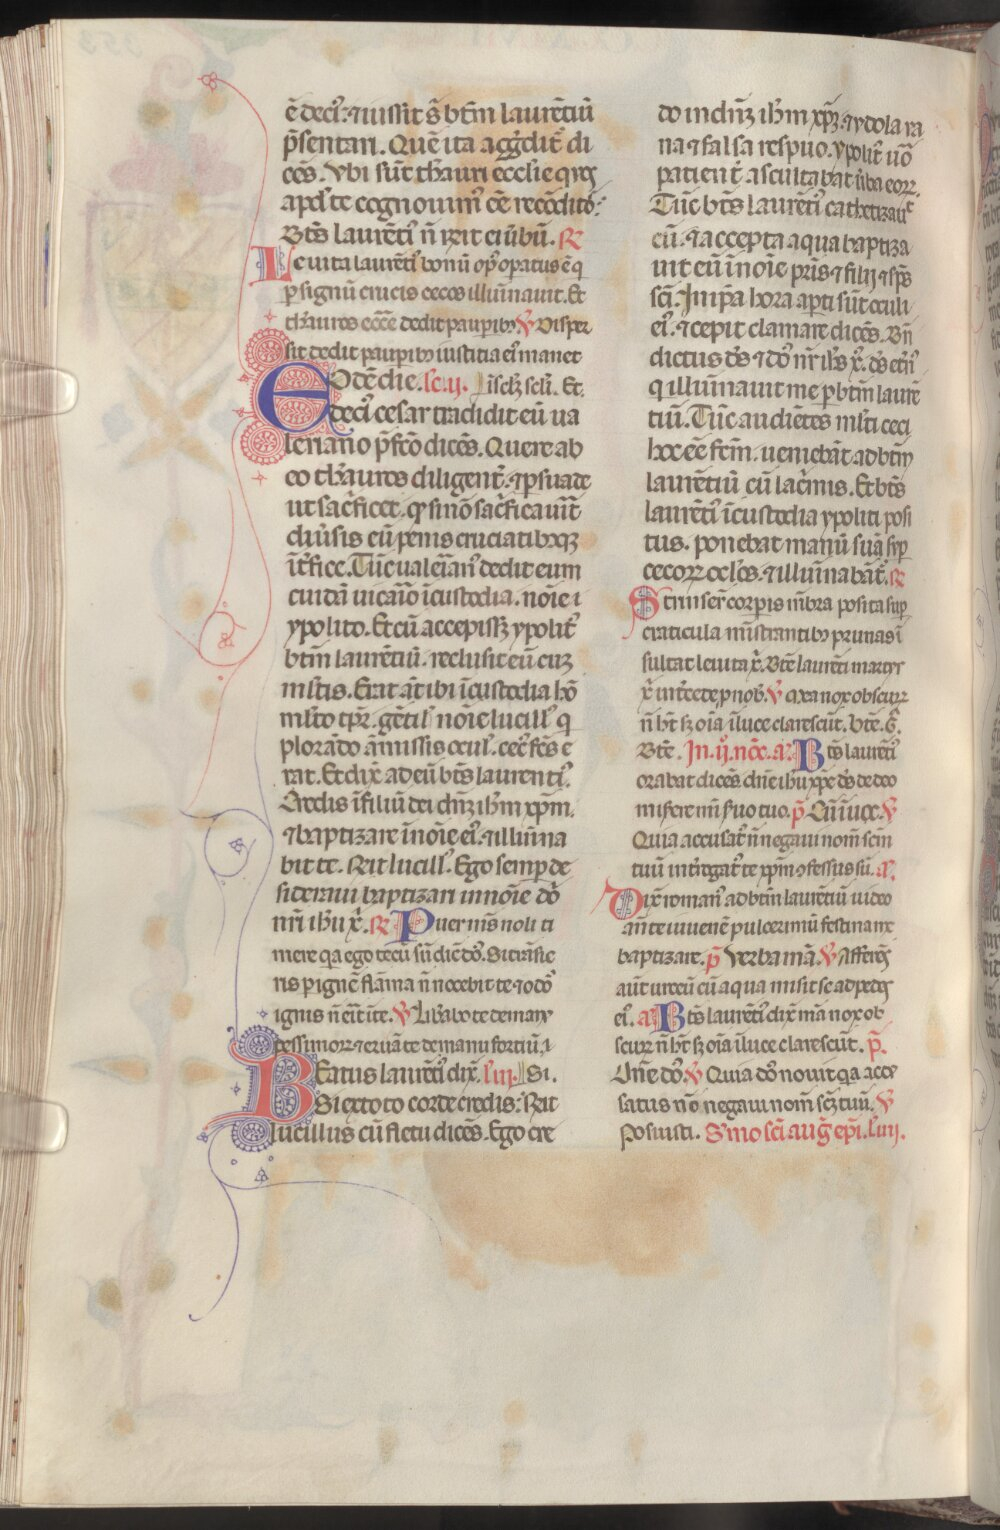 ē deciꝰ. ⁊ iussit s̄ btm̄ laurētiū
p̄sentari. Quē ita aḡgdit̄ di
cēs. Vbi sūt thauri ecclīe qͦs
apḋ te cognouimꝰ eē recōditoˢ.
Btūs laurētiꝰ n̄ redit ei ūbū. ℟
Leuita laurētiꝰ bonū opꝰ opatus ē q
ꝑ signū crucis cecos illūinauit. Et
thauros eccīe dedit paupibꝰ ℣ Disper
sit dedit paupibꝰ iustitia eiꝰ manet
Eodē die. lc. ii. iisclꝫ sclī. Et
deciꝰ cesar tradidit eū ua
leriano p̄fco dicēs. Quere ab
eo thauros diligent̄. ⁊ ꝑsuade
ut sac̄ficet. ꝙ si nō sac̄ficauīt
diūsis eū penis cruciatibꝰqꝫ
īt̄fice. Tūc ualeīanꝰ dedit eum
cuidā uicaīo ī custodia. noīe i
ypolito. Et cū accepissꝫ ypolit̄
btm̄ laurētiū. reclusit eū cuꝫ
mltis. Erat āt ibi ī custodia hō
mlto tp̄r. gētilꝰ noīe lucillꝰ q
plorādo āmissis oculꝰ. cecꝰ fcs̄ e
rat. Et dix̄ ad eū btūs laurentiꝰ.
Credis ī filiū dei dn̄ꝫ ihm xp̄m.
⁊ baptizare ī noīe eiꝰ. ⁊ illūina
bit te. Rīt lucillꝰ. Ego semꝑ de
sideraui baptizari in noīe dn̄i
nr̄i ihū x̄. ℟ Puer m̄s noli ti
mere qa ego tecū sū dic̄ dō. Si trāsie
ris ꝑ ignē flāma n̄ nocebit te ⁊ odō
ignis n̄ eīt ī te. ℣ Libabo te de manꝰ
pessimoꝝ ⁊ eruā te de manu fortiū. i
Beatus laurētiꝰ dix̄. l. iii. Si.
Si ex toto corde credis: Rīt
lucillus cū fletu dicēs. Ego cre
do in dn̄ꝫ ihm xp̄ꝫ. ⁊ ydola ua
na ⁊ falsa respuo. ypolit̄ uō
patient̄ ascultabat ūba eoꝝ.
Tūc btūs laurētiꝰ cathetizauᵗ
eū. ⁊ accepta aqua baptiza
uit eū ī noīe pr̄is ⁊ filij ⁊ sp̄s
sc̄i. In ip̄a hora apti sūt oculi
eiꝰ. ⁊ cepit clamare dicēs. Bn̄
dictus dš ⁊ dō nr̄ ihs x̄. dš et̄nꝰ
q illūinauit me ꝑ btm̄ laurē
tiū. Tūc audiētes mlti ceci
hoc eē fcm̄. ueniebāt ad btm̄
laurētiū cū lac̄mis. Et btūs
laurētiꝰ ī custodia ypoliti posi
tus. ponebat manū suā suꝑ
cecoꝝ oclōs. ⁊ illūinabāt̄. ℟
Strinxer̄ corpis mbra posita suꝑ
craticula mīstrantibꝰ prunas ī
sultat leuita x̄. Btē laurēti martyr
x̄ int̄cede ꝓ nob. ℣ Mea nox obscuꝝ
n̄ bt sꝫ oīa ī luce clarescūt. btē. G.
Btē. In. ij. nōc. a. Btūs laurētiꝰ
orabat dicēs. dn̄e ihū xp̄e dš de deo
misere mī s̄uo tuo. p̄ Cū īuoc. ℣
Quia accusat̄ n̄ negaui nom̄ scm̄
tuū int̄rogat̄ te xp̄m ꝯfessus sū. a.
Dix̄ romanꝰ ad btm̄ laurētiū uideo
añ te iuuenē pulcerimū festina me
baptizare. p̄ Verba m̄a. ℣ Afferēs
aūt urceū cū aqua misit se ad pedes
eiꝰ. a. Btūs laurētiꝰ dix̄ m̄a nox ob
scuꝝ n̄ bt sꝫ oīa ī luce clarescūt. p̄.
Dn̄e dō. ℣ Quia dō nouit qa accu
satus nō negaui nom̄ scꝫ tuū. ℣
Posuisti. Smo sc̄i auḡ epi. l. iiij.